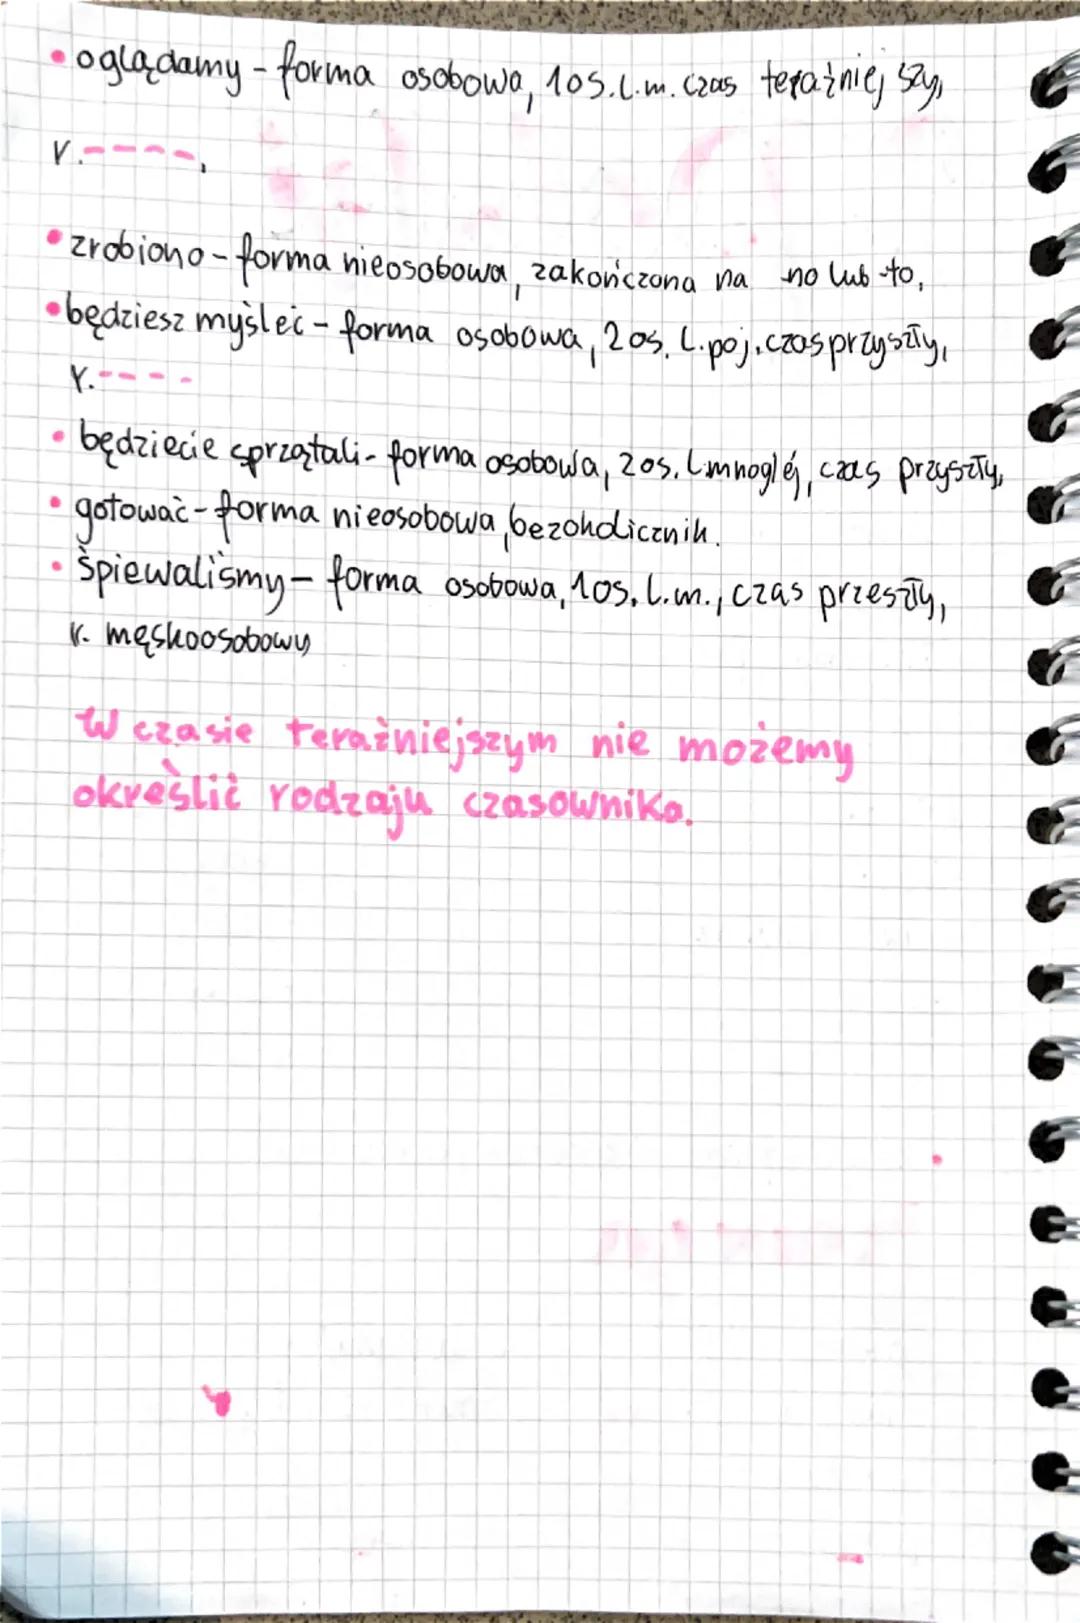 • oglądamy - forma osobowa, 1os. l.m. czas teraźniejszy,
r. ----,
• zrobiono - forma nieosobowa, zakończona na -no lub -to,
• będziesz myśleć - forma osobowa, 2os. l. poj. czas przyszły,
r. ----
• będziecie sprzątali - forma osobowa, 2os. l mnogiéj, czas przyszły,
• gotować - forma nieosobowa, bezokolicznik.
• śpiewaliśmy - forma osobowa, 1os. l.m., czas przeszły,
r. męskoosobowy
W czasie teraźniejszym nie możemy
określić rodzaju czasownika.